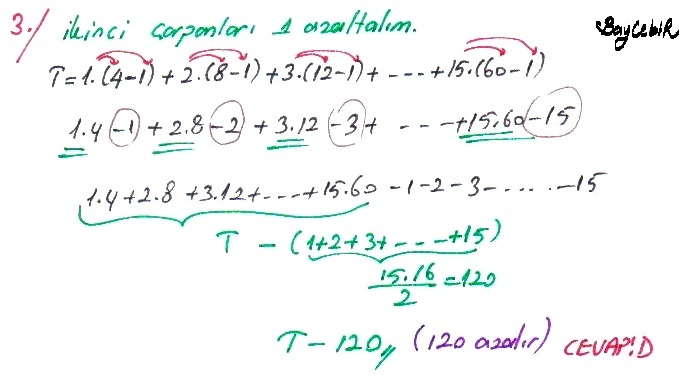 3./ ikinci çarpanları 1 azaltalım.
BayCebiR
T=1.(4-1)+2.(8-1)+3.(12-1)+----+15.(60-1)
1.4-1+2.8-2+3.12-3+ ----+15.60-15
1.4+2.8+3.12+----+15.60-1-2-3-....-15
T-(1+2+3+----+15)
15.16/2=120
T-120,, (120 azalır) CEVAP:D